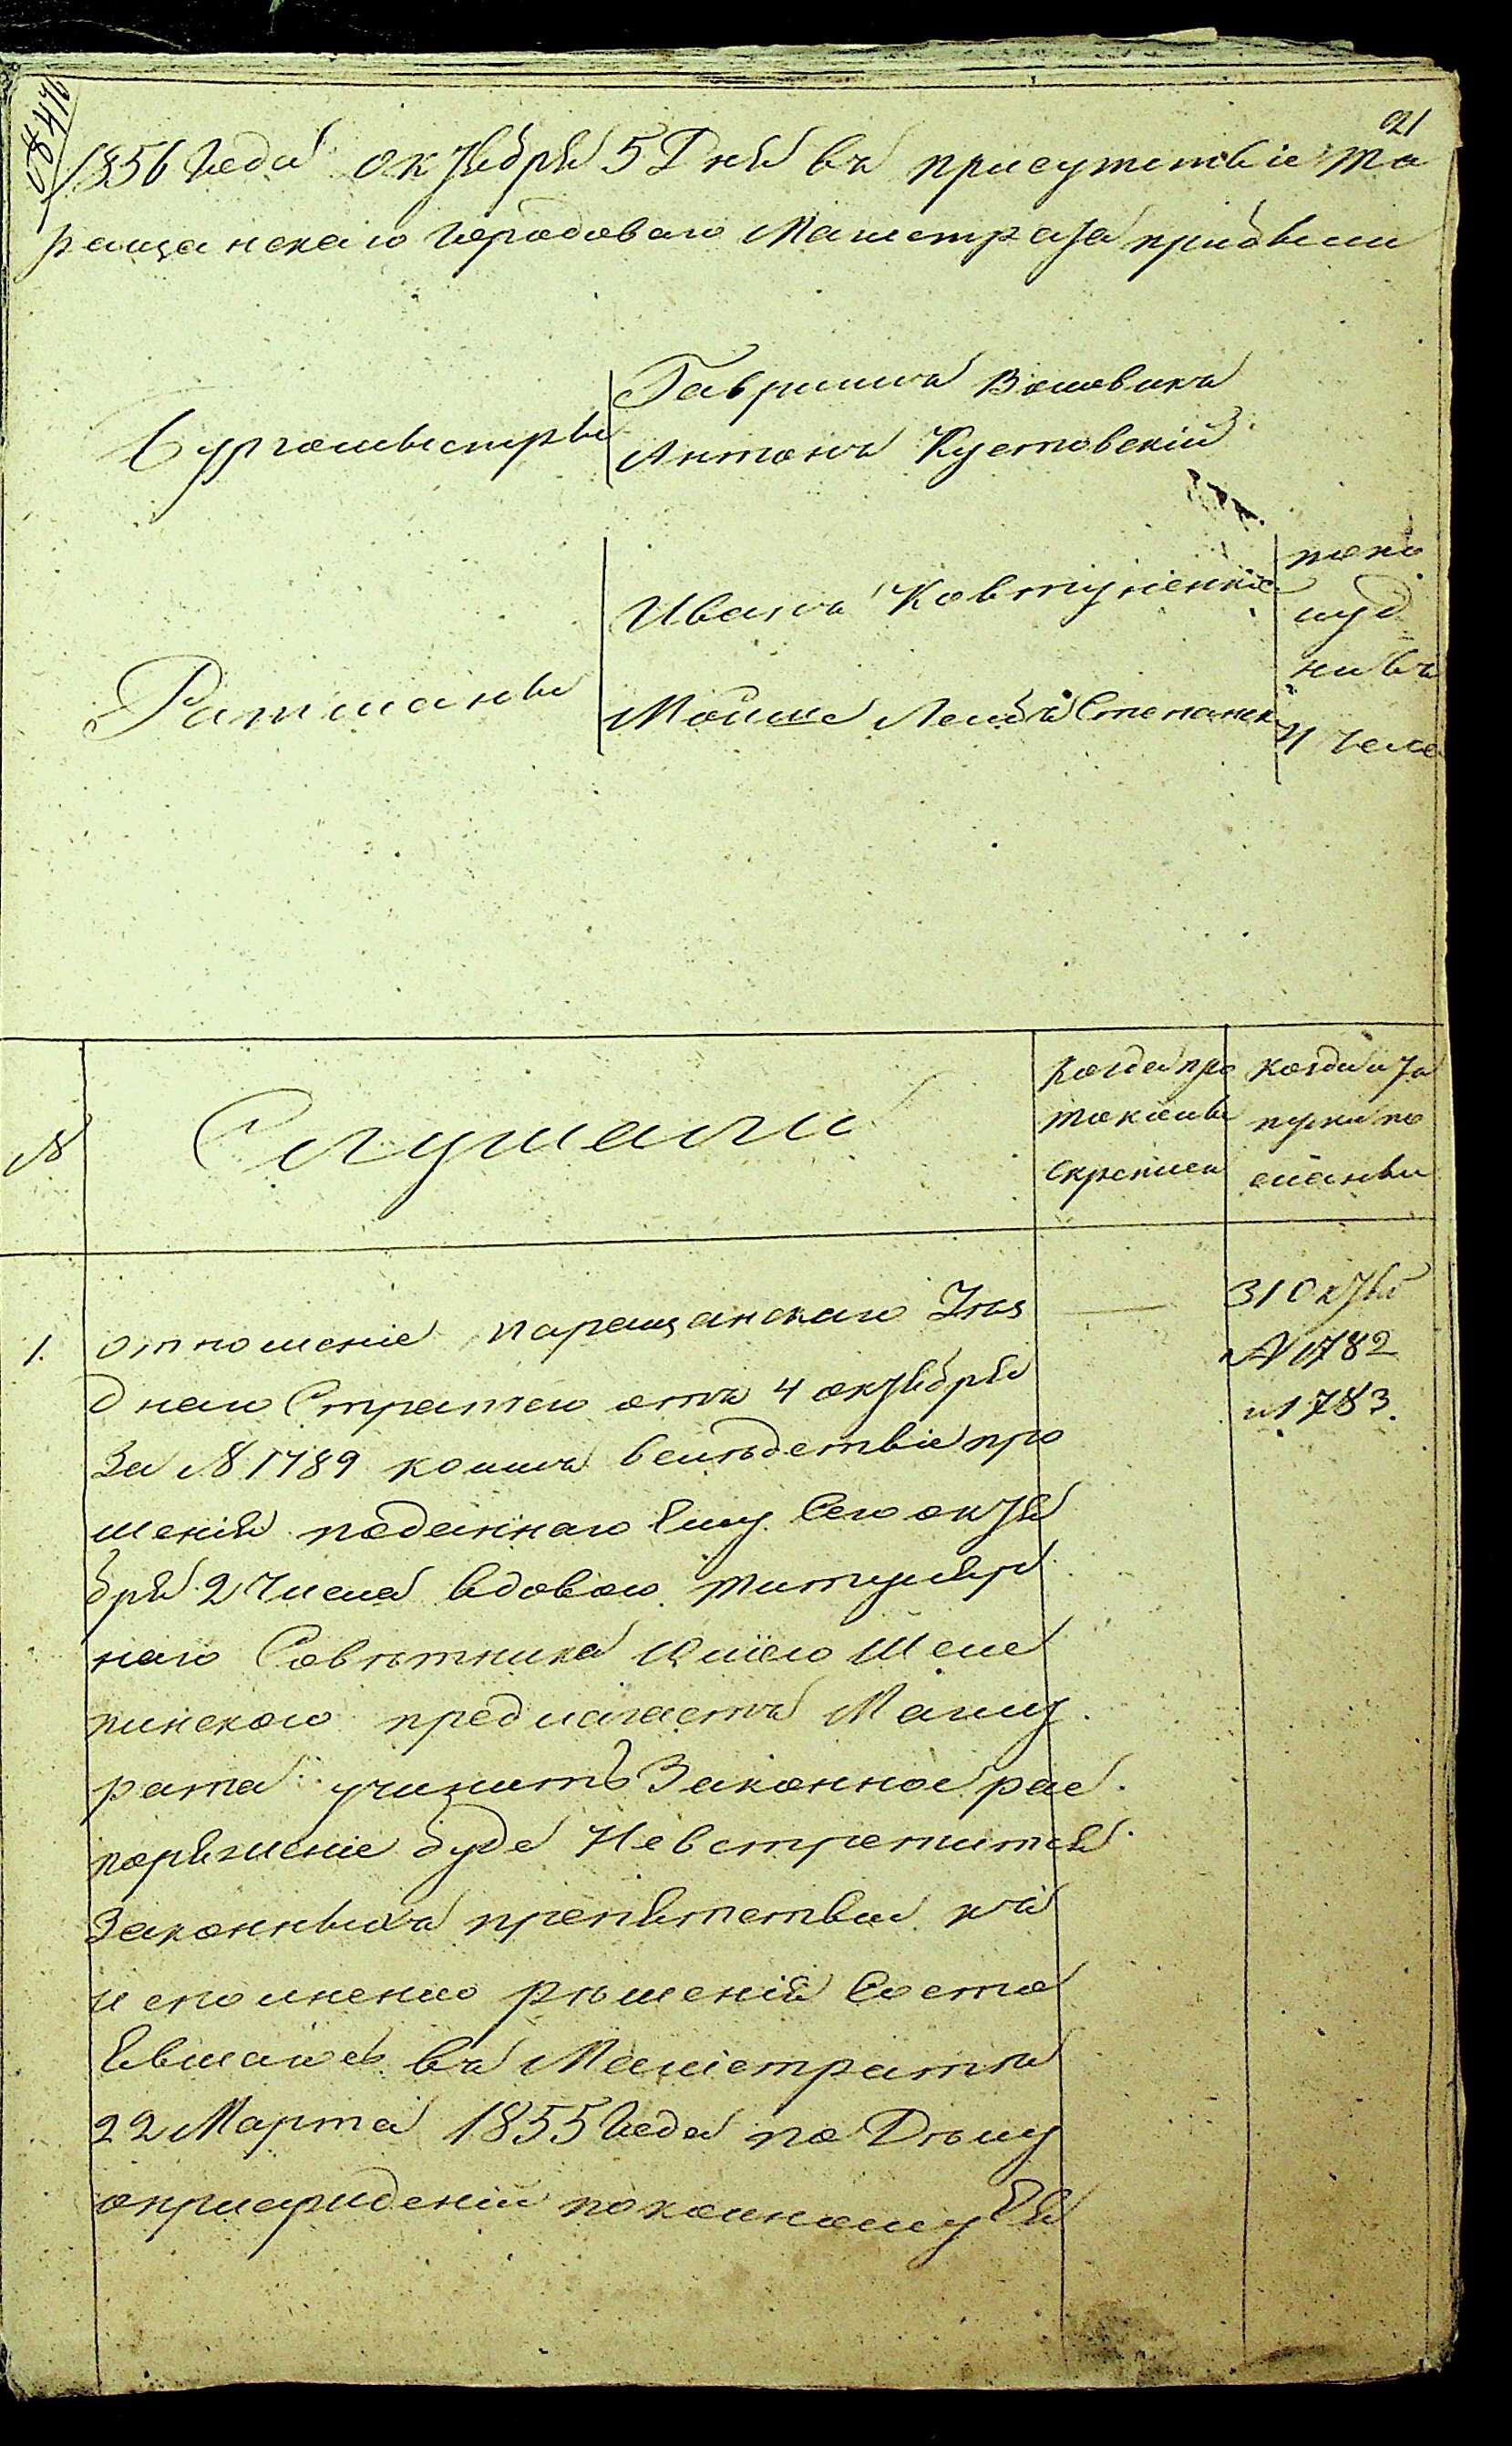 № 476
21
1856 года октября 5 дня въ присутствіе Та
ращанскаго городоваго Магистрата прибыли
Бургомистры
Гаврiилъ
Антонъ Кустовскій
Ратманы
Иванъ Ковтуненко
Мошко Лейба
по по
луд
ни въ
1 часа
№
Слушали
когда про
токолы
скреплен
когда и за
пуски по
сланы
1.
отношеніе Таращанскаго Уѣз
днаго Стряпчего отъ 4 октября
За № 1789 коимъ вслѣдствіе про
шенія поданнаго Ему Сего октя
бря 2 Числа вдовою титуляр
наго Совѣтника
предлагаетъ Магист
рата учинить Законное рас
поряженіе буде Не встретится
Законныхъ препятствiй къ
исполненію рѣшенія Состо
Явшагось въ Магістратѣ
22 Марта 1855 года по Дѣлу
оприсужденіи покойному Ея
31 Октя
№ 1782
и 1783.